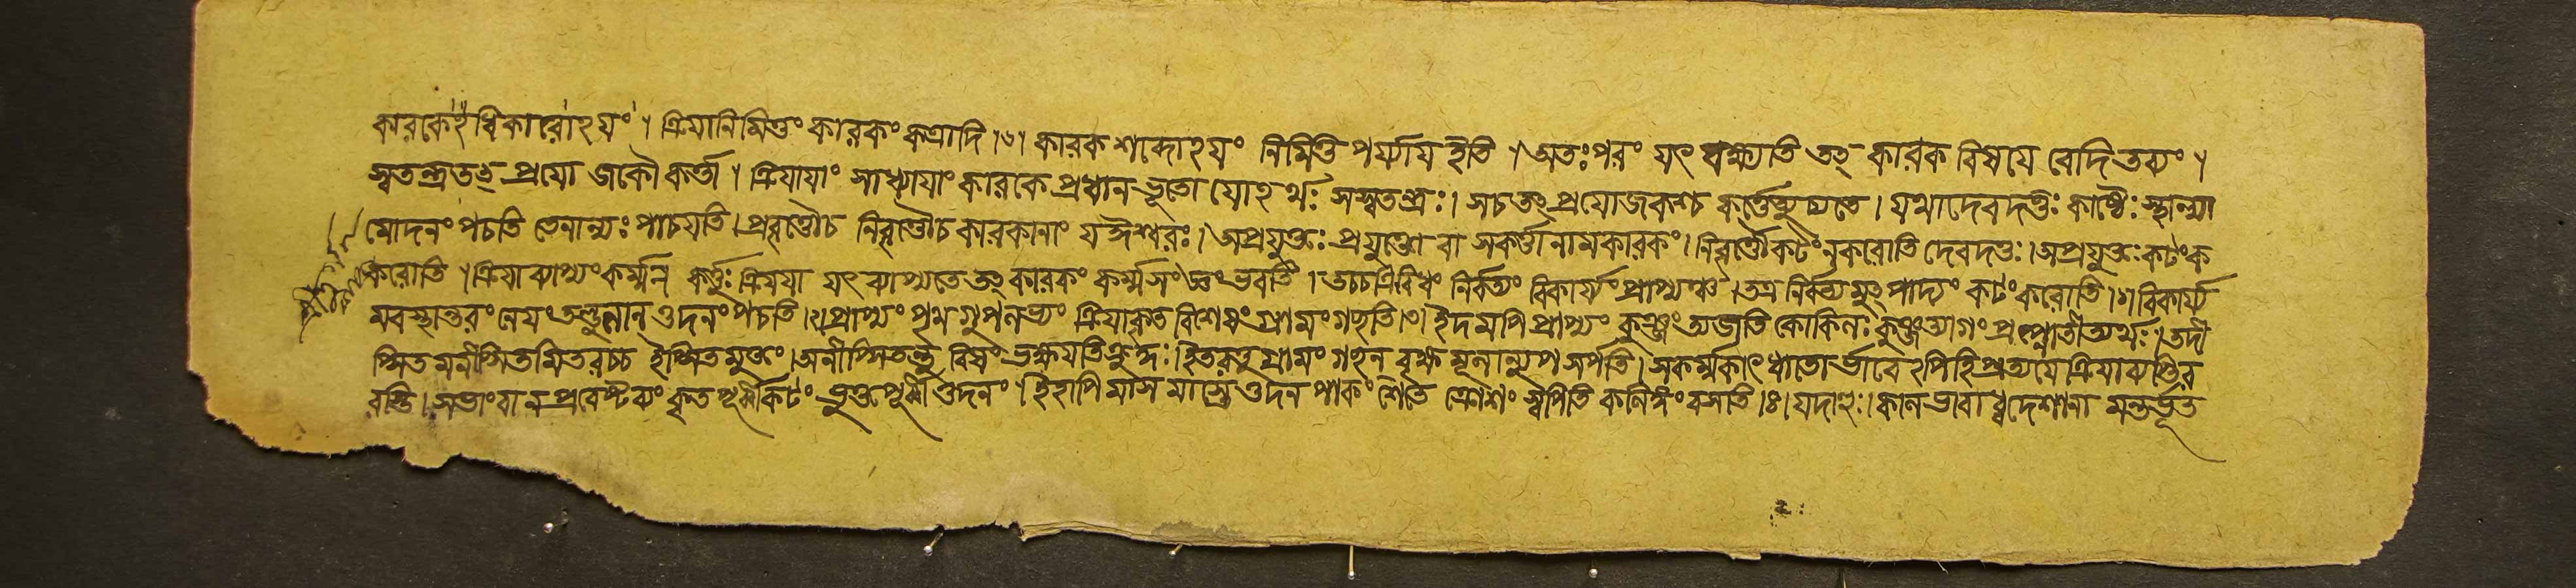 কারকেঽধিকারোঽয়ং । ক্রিয়ানিমিত্তং কারকং কত্রাদি ।৩। কারক শব্দোঽয়ং নিমিত্ত পর্য্যায় ইতি । অতঃপরং যৎ বক্ষ্যতি তৎ কারক বিষয়ে বেদিতব্যং ।
স্বতন্ত্রতৎপ্রয়োজকৌ কর্ত্তা । ক্রিয়ায়াং সাধ্যায়াং কারকে প্রধান ভূতো যোঽর্থঃ সস্বতন্ত্রঃ । সচ তৎপ্রয়োজকশ্চ কর্ত্তেত্যুচ্যতে । যথাদেবদত্তঃ কাষ্ঠৈঃ স্থাল্যা
মোদনং পচতি তেনান্যঃ পাচয়তি । প্রবৃত্তৌচ নিবৃত্তৌচ কারকানাং যঈশ্বরঃ । অপ্রযুক্তঃ প্রযুক্তো বা সকর্ত্তা নামকারকং । নিবৃর্ত্তৌকটংনকরোতি দেবদত্তঃ । অপ্রযুক্তঃকটংক
করোতি । ক্রিয়াব্যাপ্যংকর্ম্ম । কর্ত্তুঃ ক্রিয়য়া যৎ ব্যাপ্যতে তৎ কারকং কর্ম্মসংজ্ঞং ভবতি । তচ্চত্রিবিধং নির্বর্ত্যং বিকার্য্যং প্রাপ্যঞ্চ । তত্র নির্বর্ত্যমুৎপাদ্যং কটংকরোতি ।১। বিকার্য্য
মবস্থান্তরংনেয়ং তণ্ডুলান্ ওদনং পচতি ।২। প্রাপ্যং ক্রিয়াকৃত বিশেষং গ্রামংগচ্ছতি ।৩। ইদমপি প্রাপ্যং
প্সিত মনীপ্সিতমিতরচ্চ ঈপ্সিতমুক্তং । অনীপ্সিতন্তু বিষং ভক্ষয়তি ক্রুদ্ধঃ । ইতরত্তু গ্রামং গচ্ছন্ বৃক্ষ মূলান্যুপসর্পতি । সকর্ম্মকাৎ ধাতো র্ভাবেঽপিহি প্রত্যয়ে
কৃতপূর্ব্বীকটং ভুক্তপূর্ব্বী ওদনং । ইহাপি মাস মাস্তে ওদন পাকং শেতে ক্রোশং স্বপিতি । যদাহুঃ । কালভাবাধ্বদেশানা মন্তর্ভূত